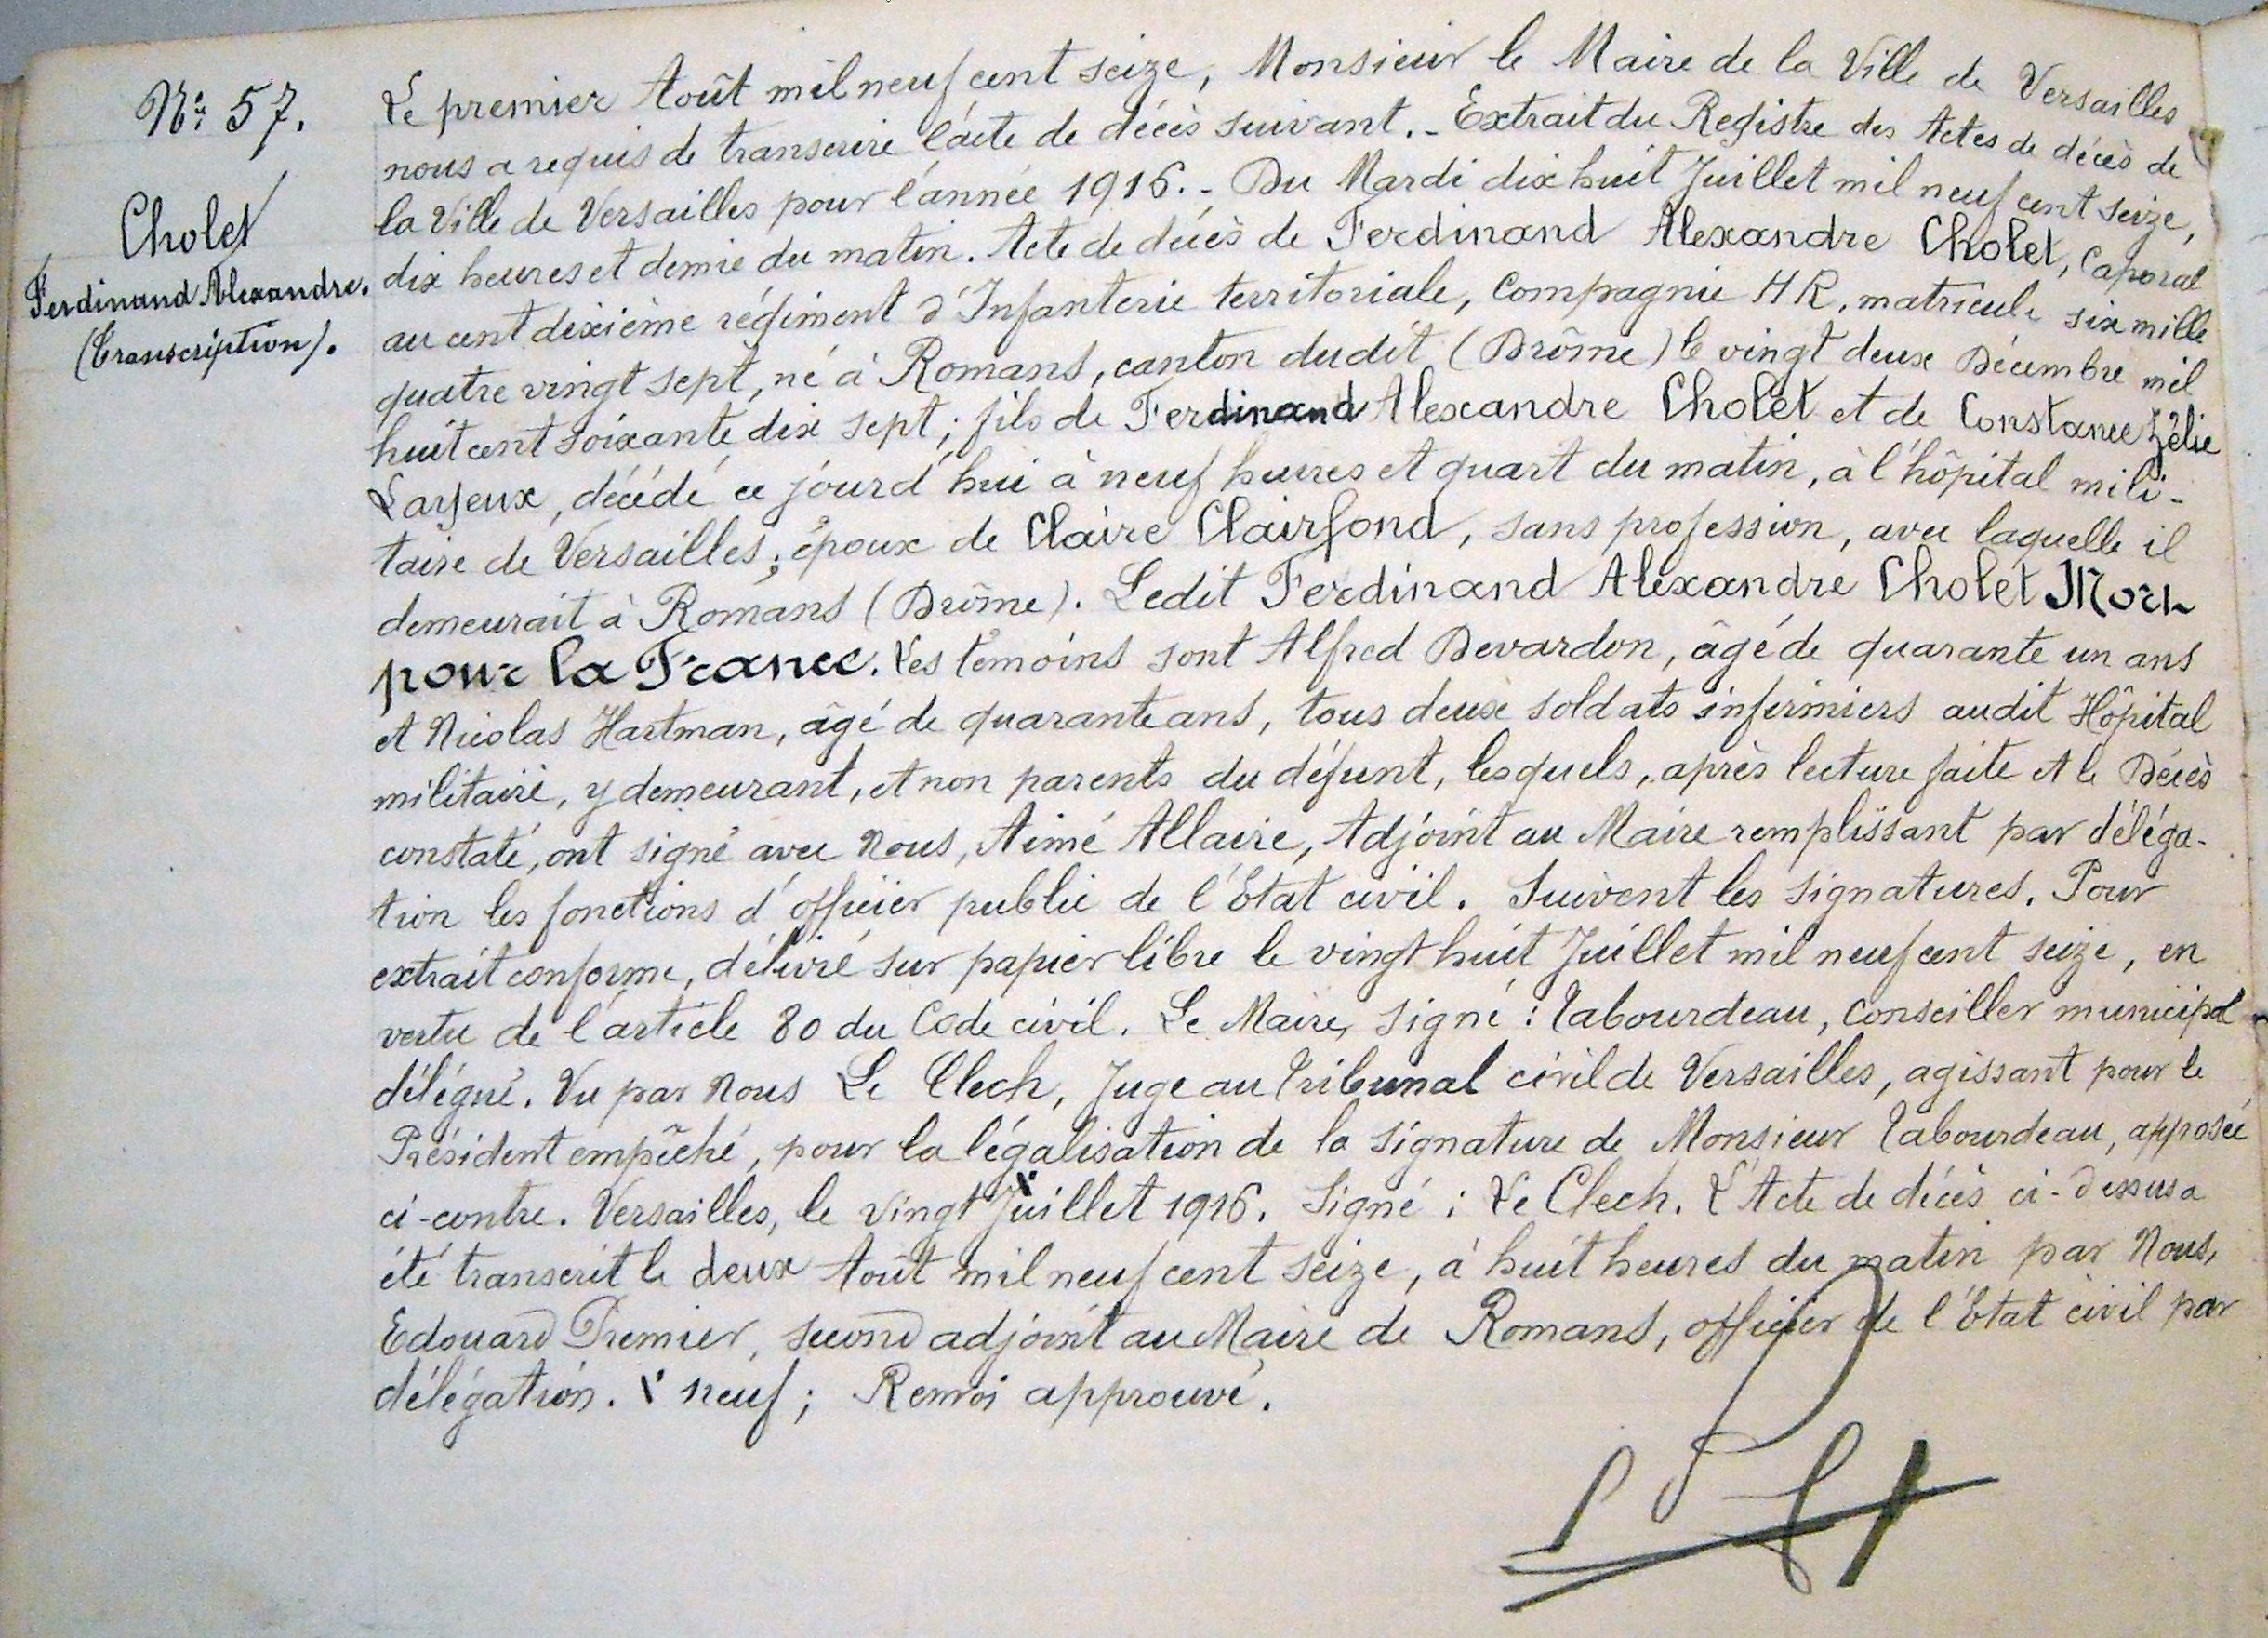 N° 57.
Cholet
Ferdinand Alexandre.
(Transcription).
Le premier Août mil neuf cent seize, Monsieur le Maire de la Ville de Versailles
nous a requis de transcrire l'acte de décès suivant. - Extrait du Registre des Actes de décès de
la Ville de Versailles pour l'année 1916. - Du Mardi dix huit Juillet mil neuf cent seize,
dix heures et demie du matin. Acte de décès de Ferdinand Alexandre Cholet, Caporal
au cent dixième régiment d'Infanterie territoriale, Compagnie HR, matricule six mille
quatre vingt sept, né à Romans, canton dudit (Drôme) le vingt deux Décembre mil
huit cent soixante dix sept; fils de Ferdinand Alexandre Cholet et de Constance Zélie
Larjeux, décédé ce jourd'hui à neuf heures et quart du matin, à l'hôpital mili-
taire de Versailles; époux de Claire Clairfond, sans profession, avec laquelle il
demeurait à Romans (Drôme). Ledit Ferdinand Alexandre Cholet Mort
pour la France. Les témoins sont Alfred Devardon, âgé de quarante un ans
et Nicolas Hartman, âgé de quarante ans, tous deux soldats infirmiers audit Hôpital
militaire, y demeurant, et non parents du défunt, lesquels, après lecture faite et le Décès
constaté, ont signé avec Nous, Aimé Allaire, Adjoint au Maire remplissant par déléga-
tion les fonctions d'officier public de l'Etat civil. Suivent les signatures. Pour
extrait conforme, délivré sur papier libre le vingt huit Juillet mil neuf cent seize, en
vertu de l'article 80 du Code civil. Le Maire, signé : Tabourdeau, Conseiller municipal
délégué. Vu par Nous Le Clech, Juge au Tribunal civil de Versailles, agissant pour le
Président empêché, pour la légalisation de la signature de Monsieur Tabourdeau, apposée
ci-contre. Versailles, le vingt x Juillet 1916. Signé : Le Clech. L'Acte de décès ci-dessus a
été transcrit le deux Août mil neuf cent seize, à huit heures du matin par Nous,
Edouard Premier, second adjoint au Maire de Romans, officier de l'Etat civil par
délégation. x neuf; Renvoi approuvé.